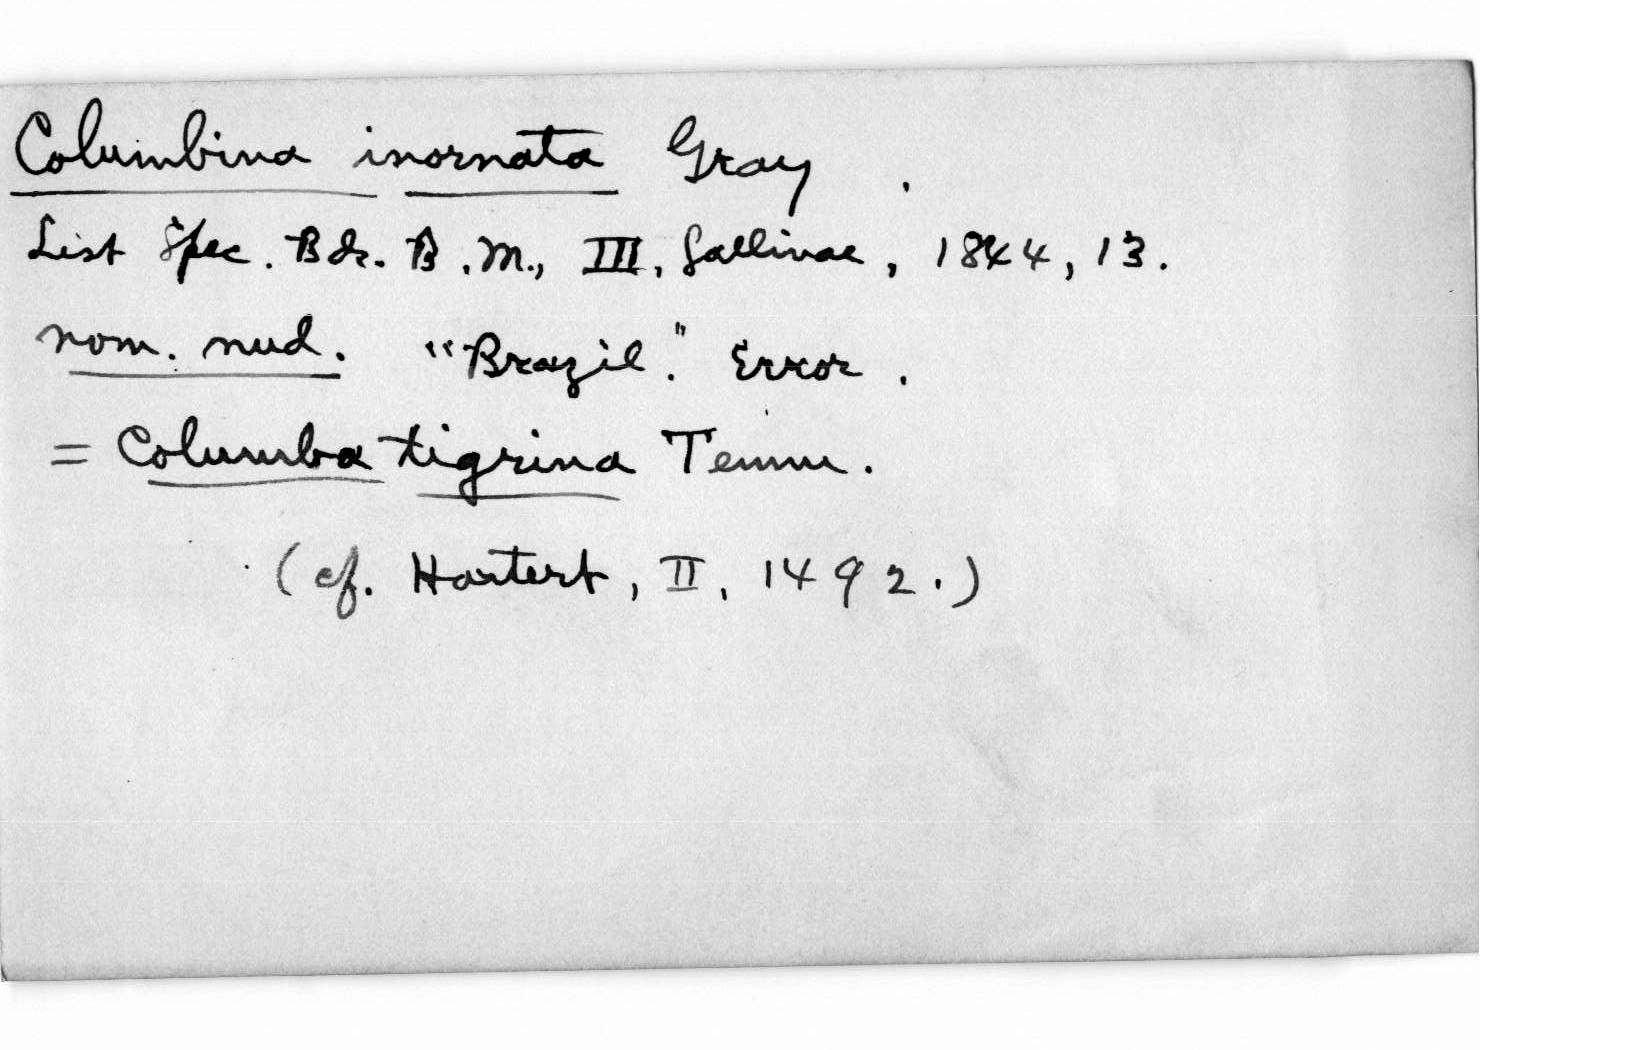 Columbina inornata Gray.
List Spec. Bds. B.M., III, Gallinae, 1844, 13.
nom. nud. "Brazil." Error.
= Columba tigrina Temm.
(cf. Hartert, II, 1492.)